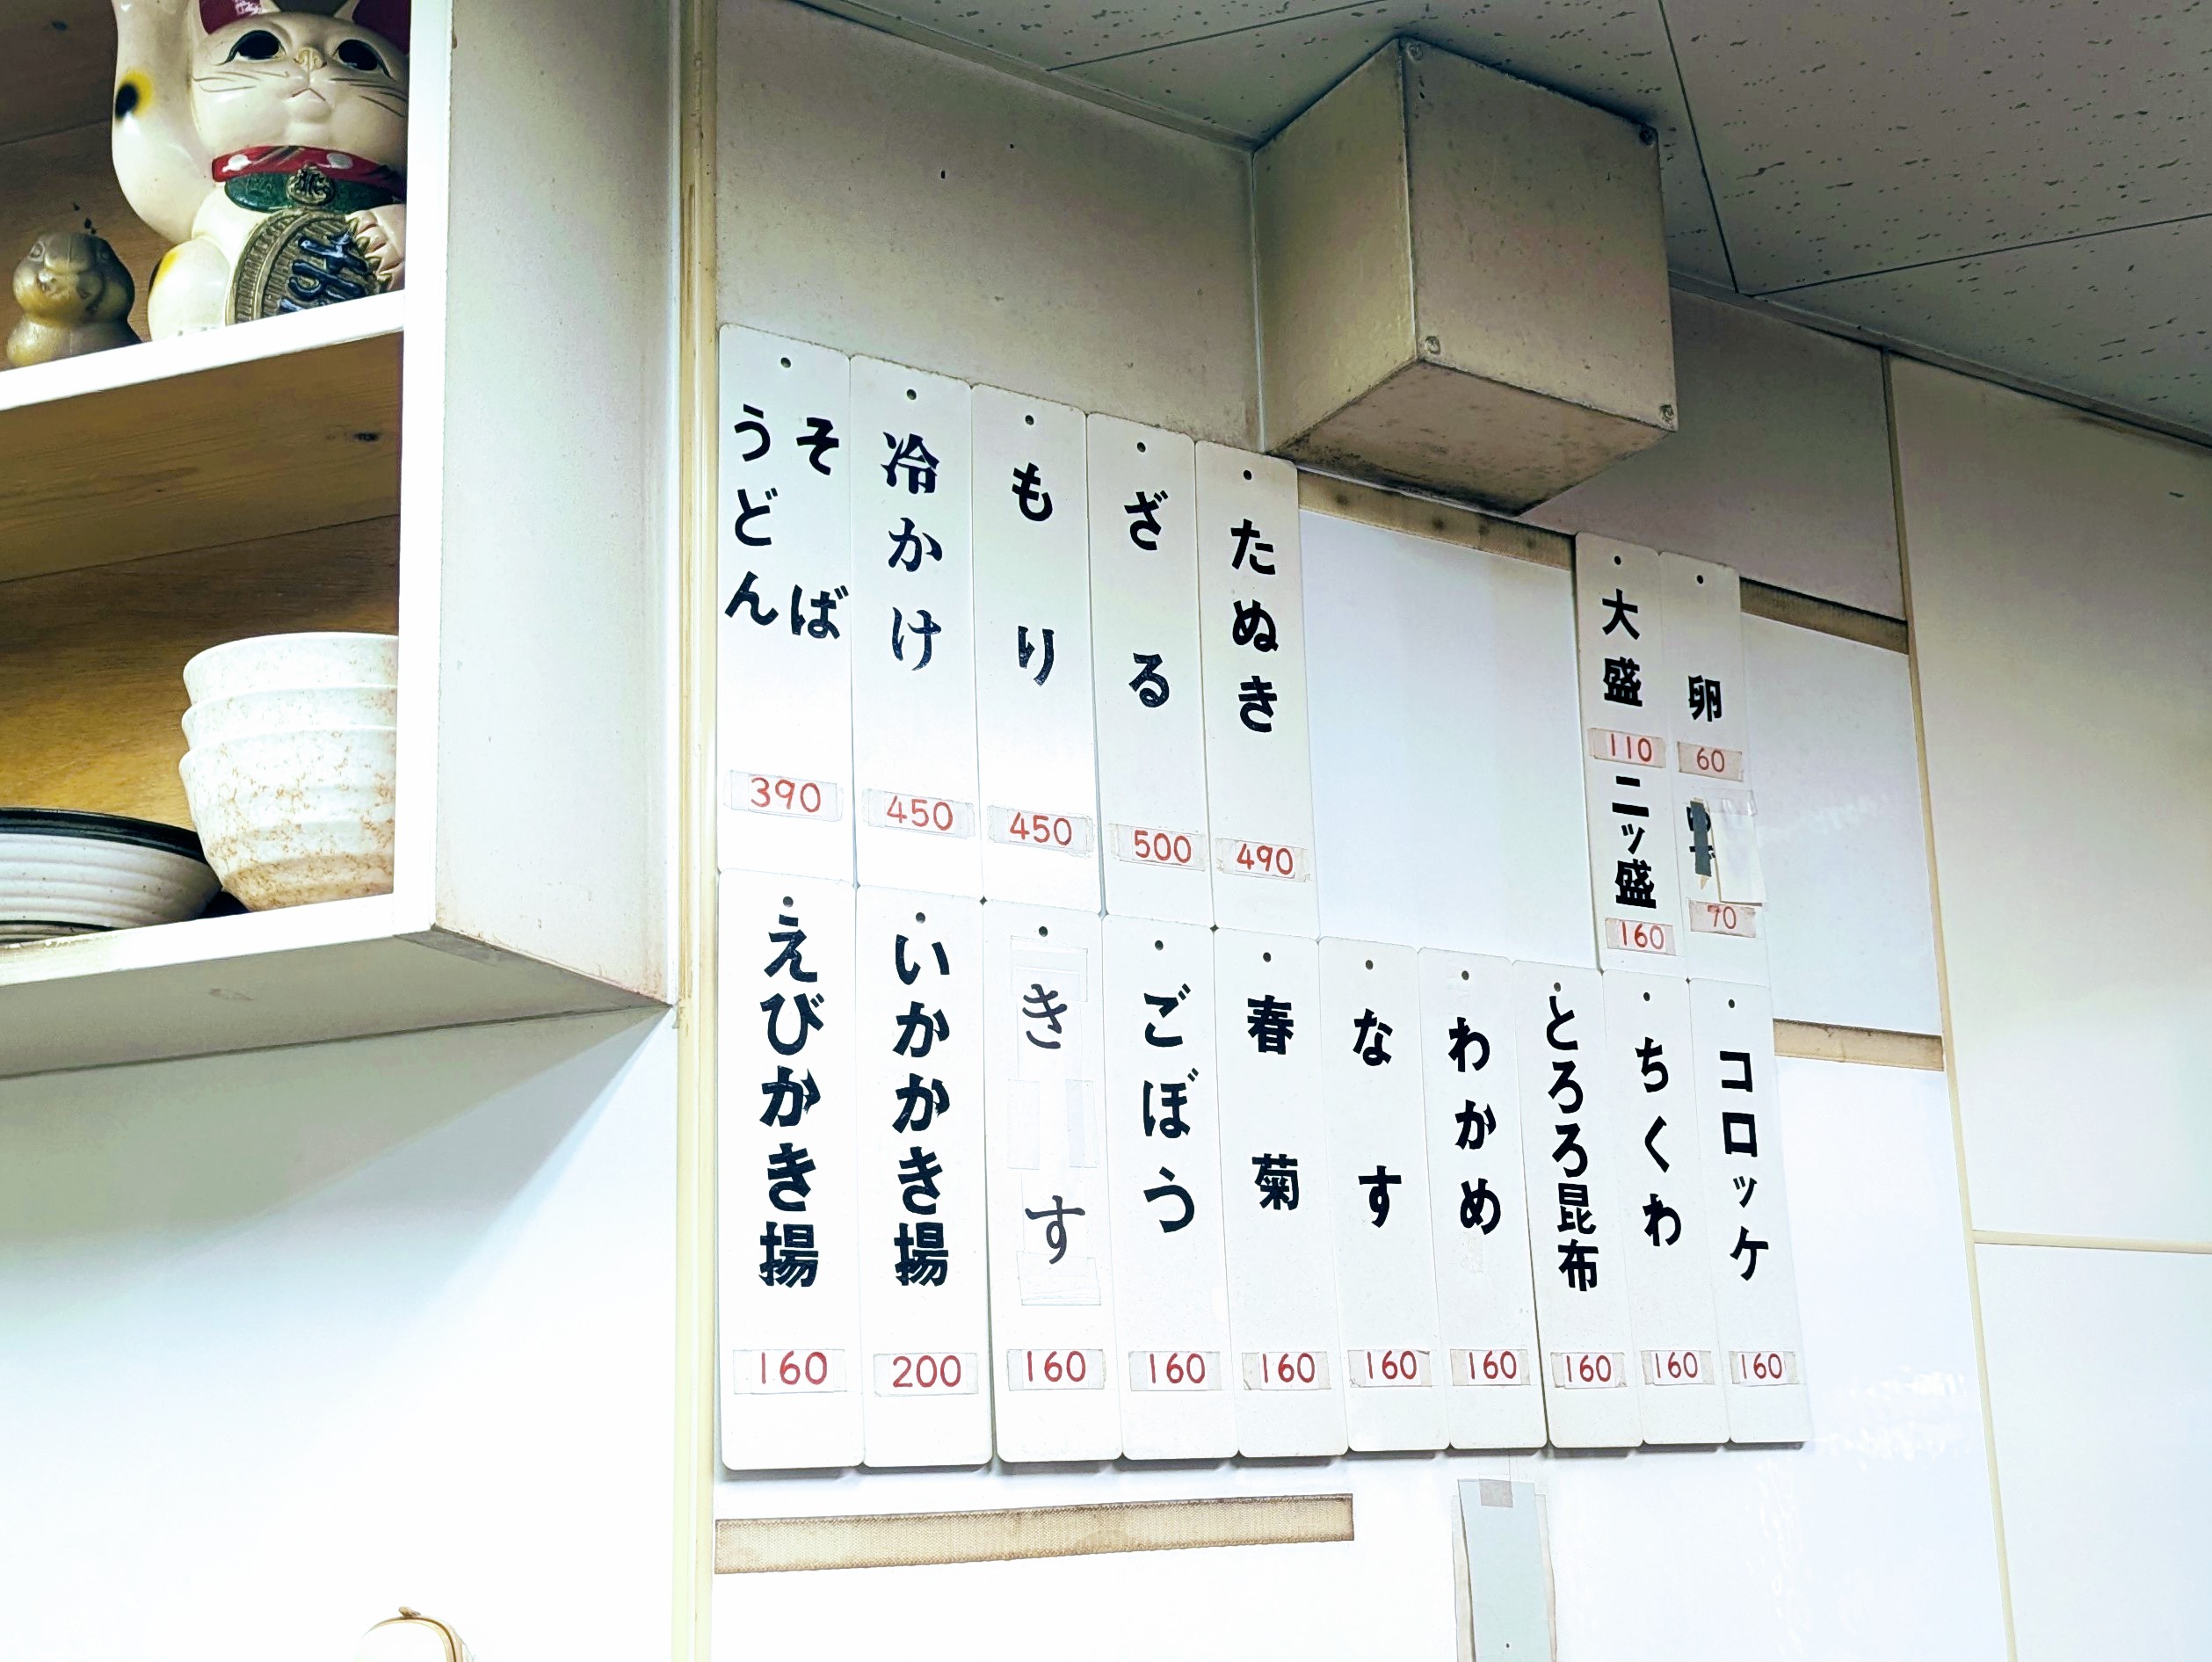 そば
うどん
390
冷かけ
450
もり
450
ざる
500
たぬき
490
大盛
110
二ッ盛
160
卵
60
70
えびかき揚
160
いかかき揚
200
きす
160
ごぼう
160
春菊
160
なす
160
わかめ
160
とろろ昆布
160
ちくわ
160
コロッケ
160